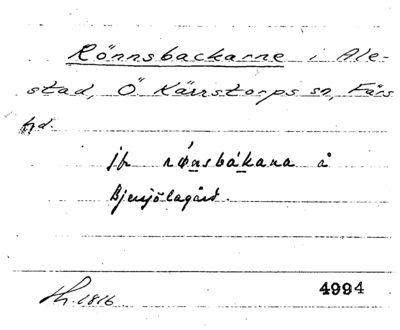 Rönnsbackarne i Ale-
stad, Ö Kärrstorps sn, Färs
hd.
jfr rǿnsbákana å
Bjersjölagård.
Th. 1816 4994